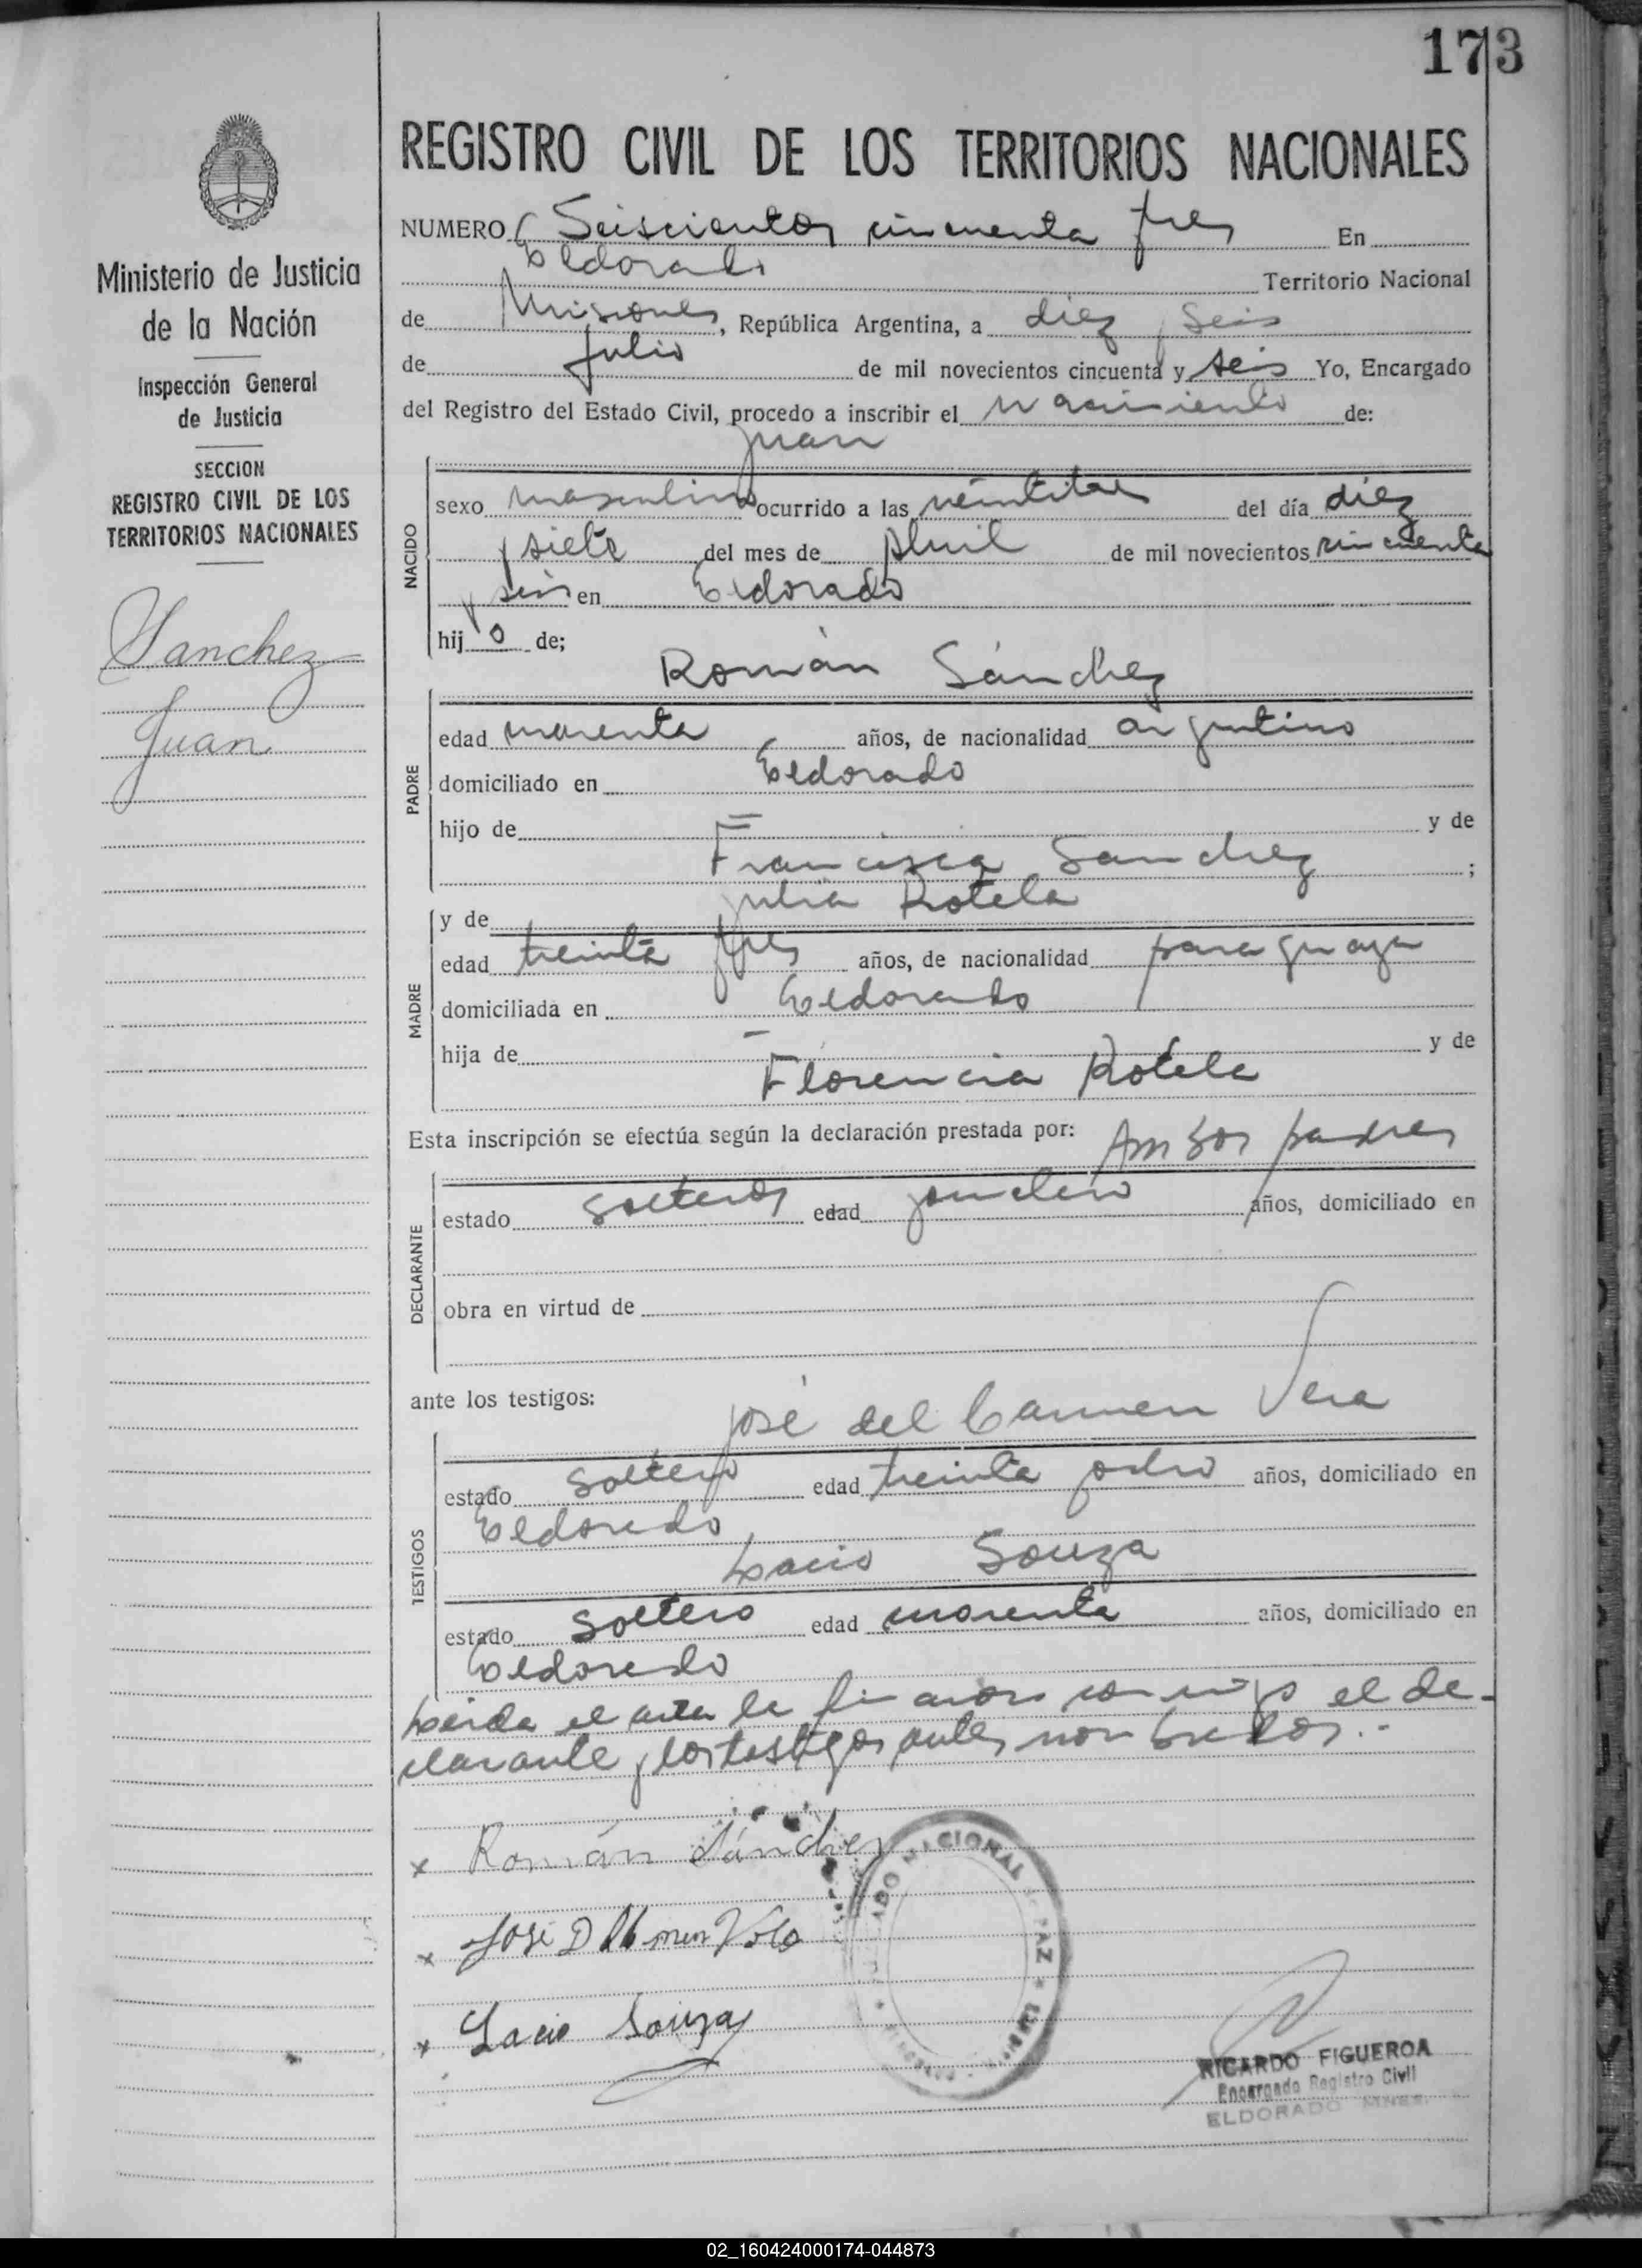 173
REGISTRO CIVIL DE LOS TERRITORIOS NACIONALES
Ministerio de Justicia
de la Nación
Inspección General
de Justicia
SECCION
REGISTRO CIVIL DE LOS
TERRITORIOS NACIONALES
Sanchez
Juan
NUMERO Seiscientos cincuenta y tres En
Eldorado Territorio Nacional
de Misiones, República Argentina, a diez y seis
de Julio de mil novecientos cincuenta y seis Yo, Encargado
del Registro del Estado Civil, procedo a inscribir el nacimiento de:
Juan
NACIDO
sexo masculino ocurrido a las del día diez
y siete del mes de Abril de mil novecientos cincuenta
y seis en Eldorado
hij o de;
Román Sánchez
PADRE
edad cuarenta años, de nacionalidad argentino
domiciliado en Eldorado
hijo de y de
Francisca Sanchez ;
y de Julia Rotela
MADRE
edad treinta y tres años, de nacionalidad paraguaya
domiciliada en Eldorado
hija de y de
Florencia Rotela
Esta inscripción se efectúa según la declaración prestada por: Ambos padres
DECLARANTE
estado solteros edad años, domiciliado en
obra en virtud de
ante los testigos:
José del Carmen Vera
TESTIGOS
estado soltero edad treinta y ocho años, domiciliado en
Eldorado
Lacio Souza
estado soltero edad cuarenta años, domiciliado en
Eldorado
Leida el acta la firmaron conmigo el de-
clarante y los testigos antes nombrados.-
x Román Sánchez
x José
x Lacio Souza
NACIONAL PAZ
RICARDO FIGUEROA
Encargado Registro Civil
ELDORADO MNES.
02_160424000174-044873